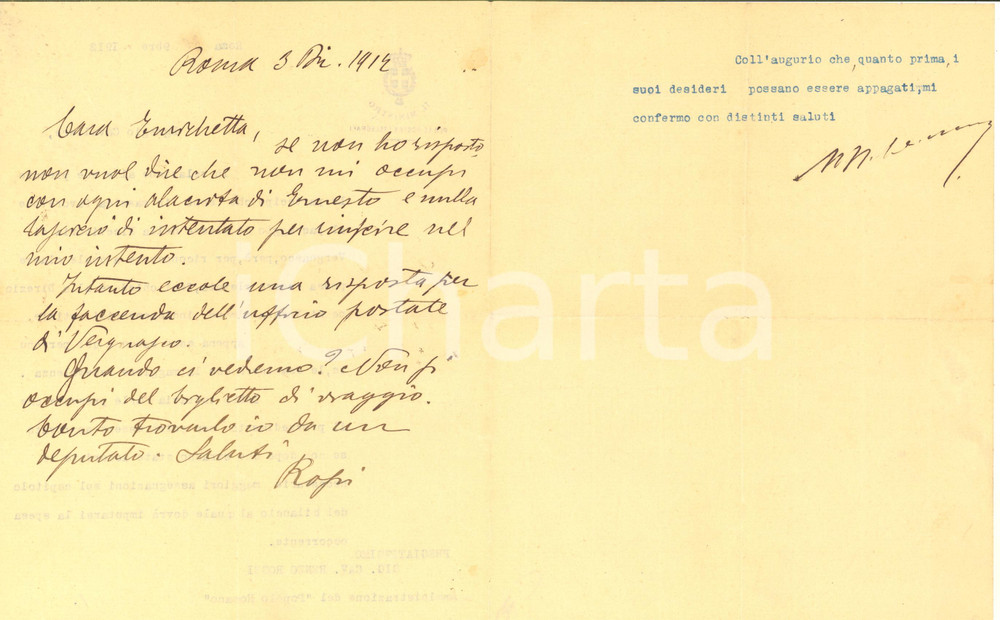 Roma 3 Dic. 1912
Cara Enrichetta,
se non ho risposto
non vuol dire che non mi occupi
con ogni alacrità di Ernesto e nulla
lascio di intentato per riuscire nel
mio intento.
Intanto eccole una risposta per
la faccenda dell'ufficio postale
di Vergnasco.
Quando ci vedremo? Non si
occupi del biglietto di viaggio.
Conto trovarlo io da un
deputato. Saluti
Rossi
Coll'augurio che, quanto prima, i
suoi desideri possano essere appagati, mi
confermo con distinti saluti
iCharta